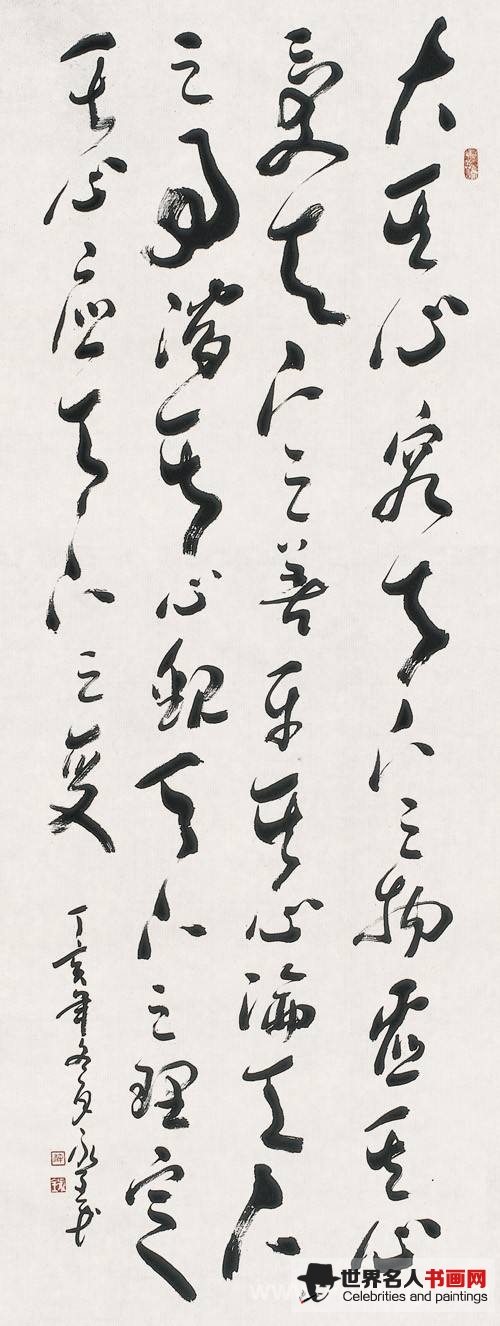 大其心容天下之物虛其心
受天下之善平其心論天下
之事潛其心觀天下之理定
其心應天下之變
丁亥年冬月永
世界名人书画网
Celebrities and paintings